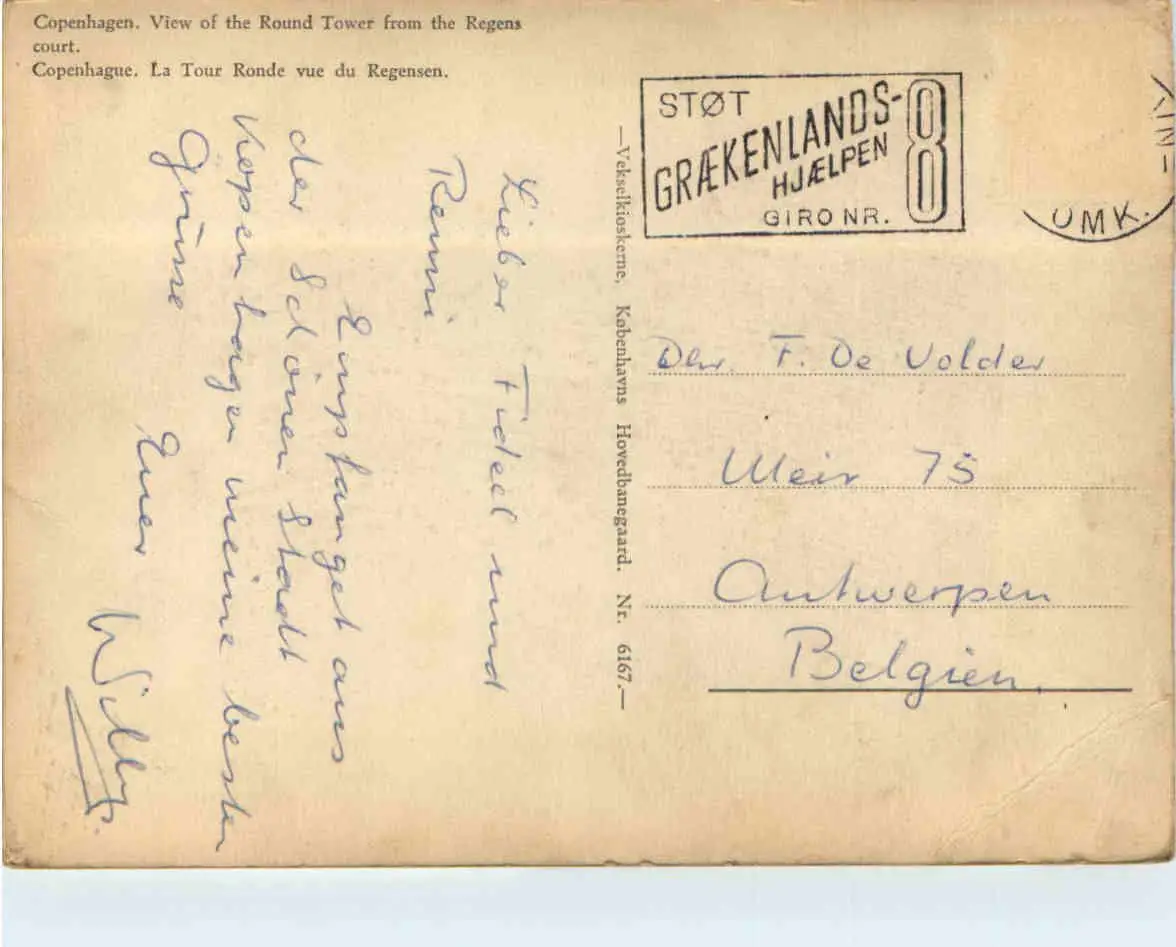 Copenhagen. View of the Round Tower from the Regens
court.
Copenhague. La Tour Ronde vue du Regensen.
Lieber Fideel und
Remi
Empfanget aus
der Schönen Stadt
Kopenhagen meine besten
Grüsse
Euer
Willy.
—Vekselkioskerne, Københavns Hovedbanegaard. Nr. 6167.—
STØT
GRÆKENLANDS-
HJÆLPEN
GIRO NR. 8
OMK.
F. De Volder
Meir 75
Antwerpen
Belgien.